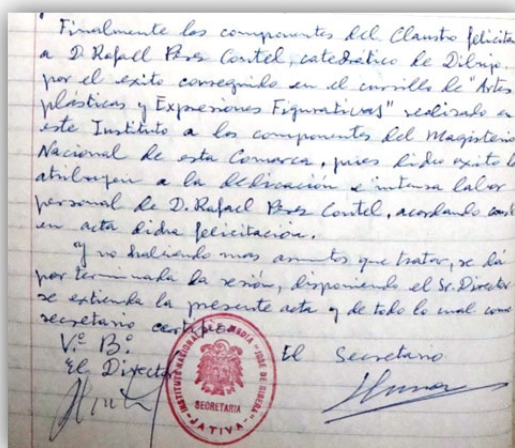 Finalmente los componentes del Claustro felicitan
a D. Rafael Perez Contel, catedrático de Dibujo,
por el exito conseguido en el cursillo de "Artes
plásticas y Expresiones Figurativas" realizado en
este Instituto a los componentes del Magisterio
Nacional de esta Comarca, pues dicho exito lo
atribuyen a la dedicación e intensa labor
personal de D. Rafael Perez Contel, acordando
en acta dicha felicitación.
Y no habiendo mas asuntos que tratar, se dá
por terminada la sesión, disponiendo el Sr. Director
se extienda la presente acta y de todo lo cual como
secretario certifico
Vº Bº
El Director
El Secretario
INSTITUTO NACIONAL DE E. MEDIA "JOSE DE RIBERA"
SECRETARIA
JATIVA